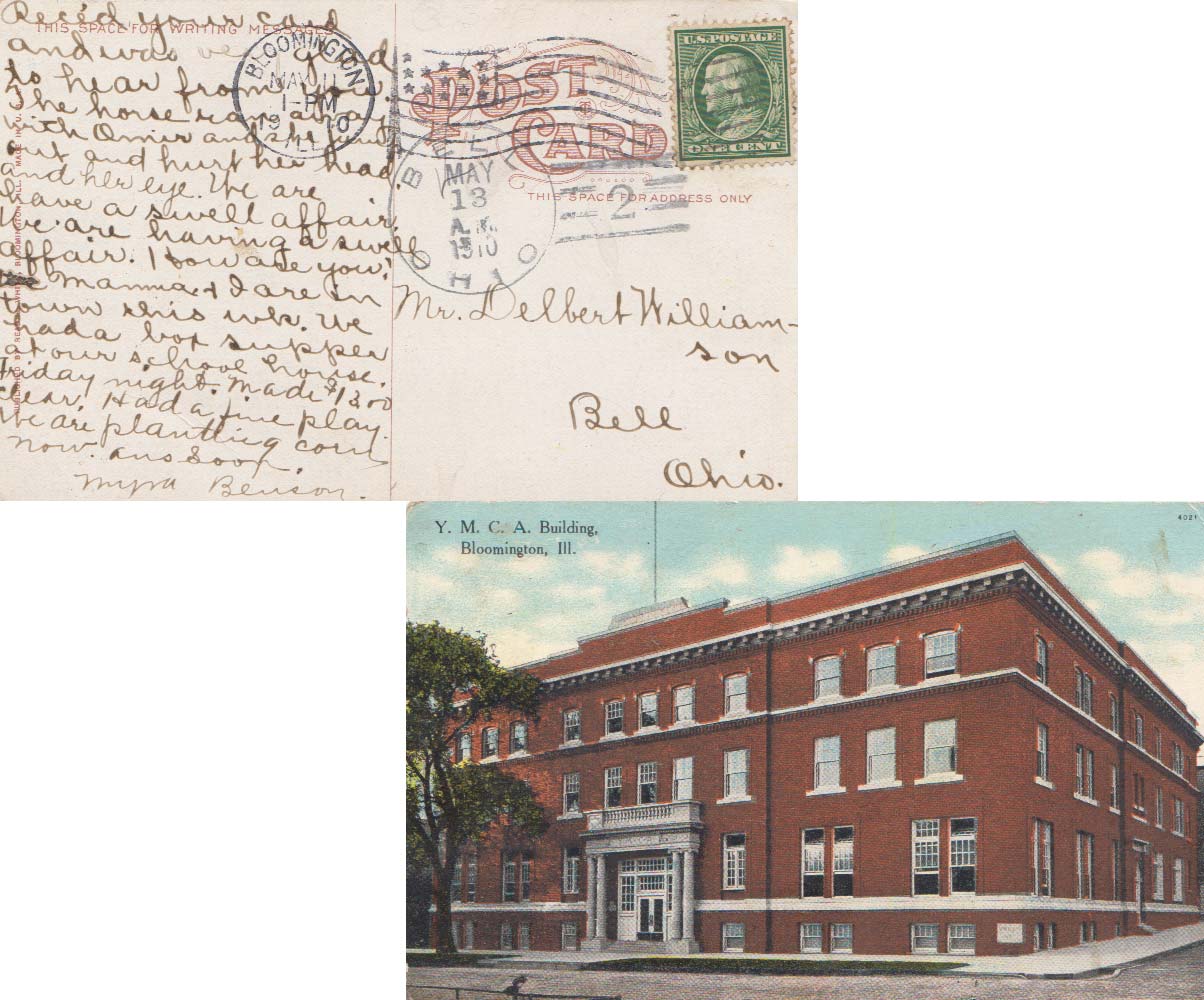 THIS SPACE FOR WRITING MESSAGES
Rec'd your card
and was very glad
to hear from you.
The horse ran away
with Omir and she
out and hurt her head.
and her eye. We are
have a swell affair.
We are having a swell
affair. How are you?
Mamma & I are in
town this wk. We
had a box supper
at our school house.
Friday night. Made $13.00
clear. Had a fine play.
We are plantting corn
now. ans soon.
Myra Benson.
BLOOMINGTON
MAY 11
1-PM
1910
ILL.
POST
CARD
THIS SPACE FOR ADDRESS ONLY
U.S. POSTAGE
ONE CENT
BELL
MAY
13
A.M.
1910
OHIO
2
Mr. Delbert William-
son
Bell
Ohio.
Y. M. C. A. Building,
Bloomington, Ill.
4021